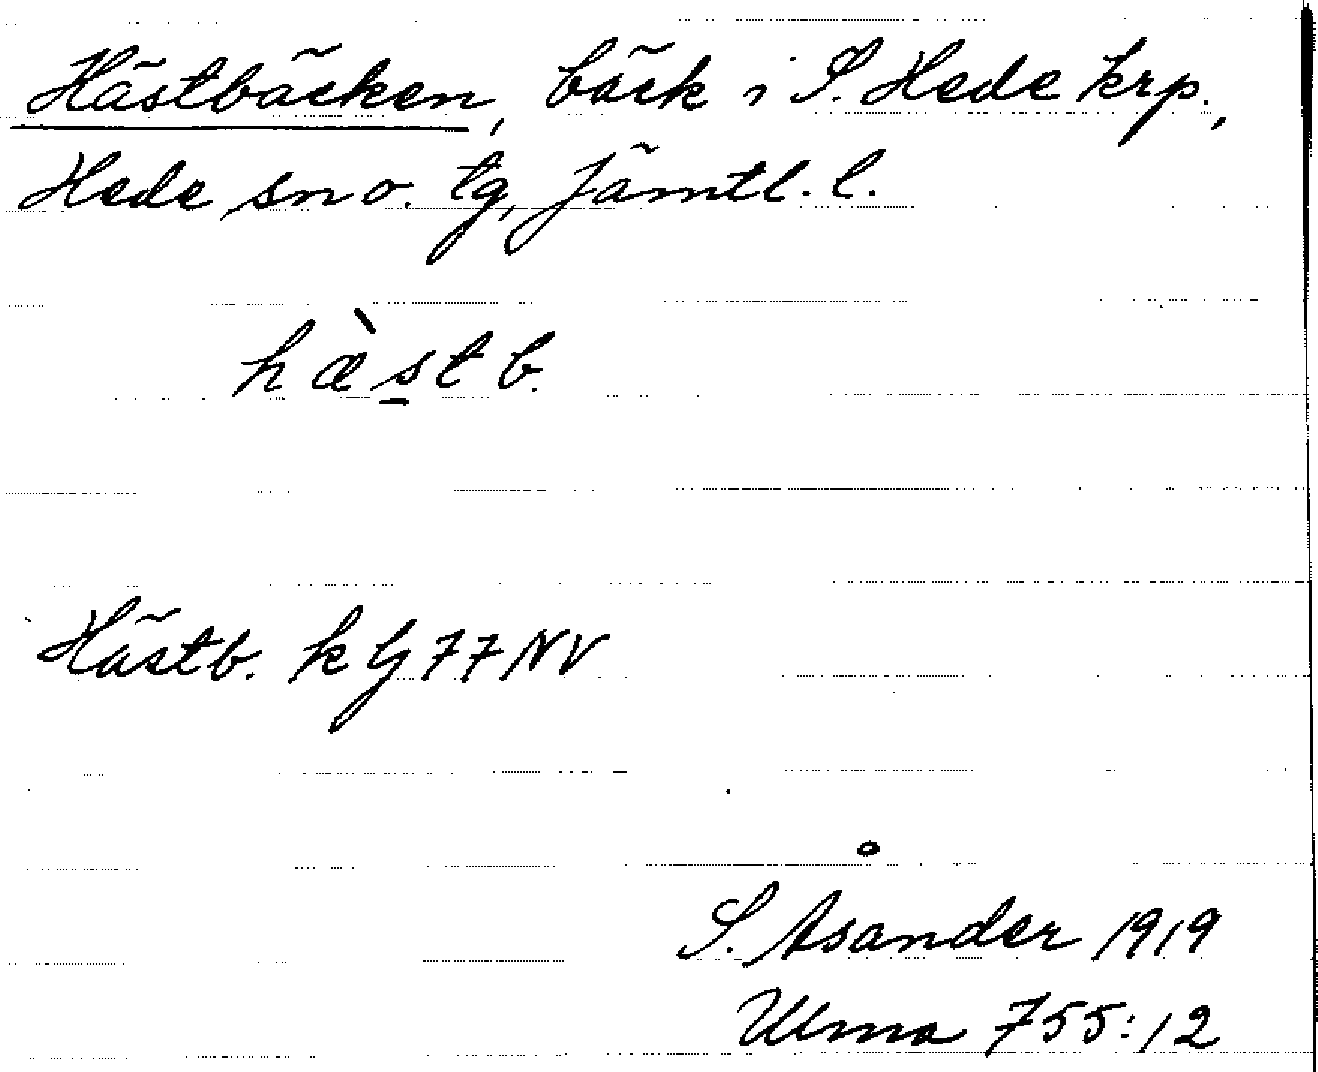 Hästbäcken, bäck i S. Hede krp.,
Hede sn o. tg, Jämtl. l.
hæ̀s̠tb.
Hästb. kG 77 NV
S. Åsander 1919
Ulma 755:12